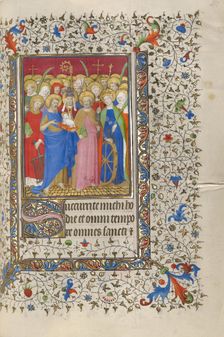 Succurrite michi ho
die et omni tempo
re omnes sancti et